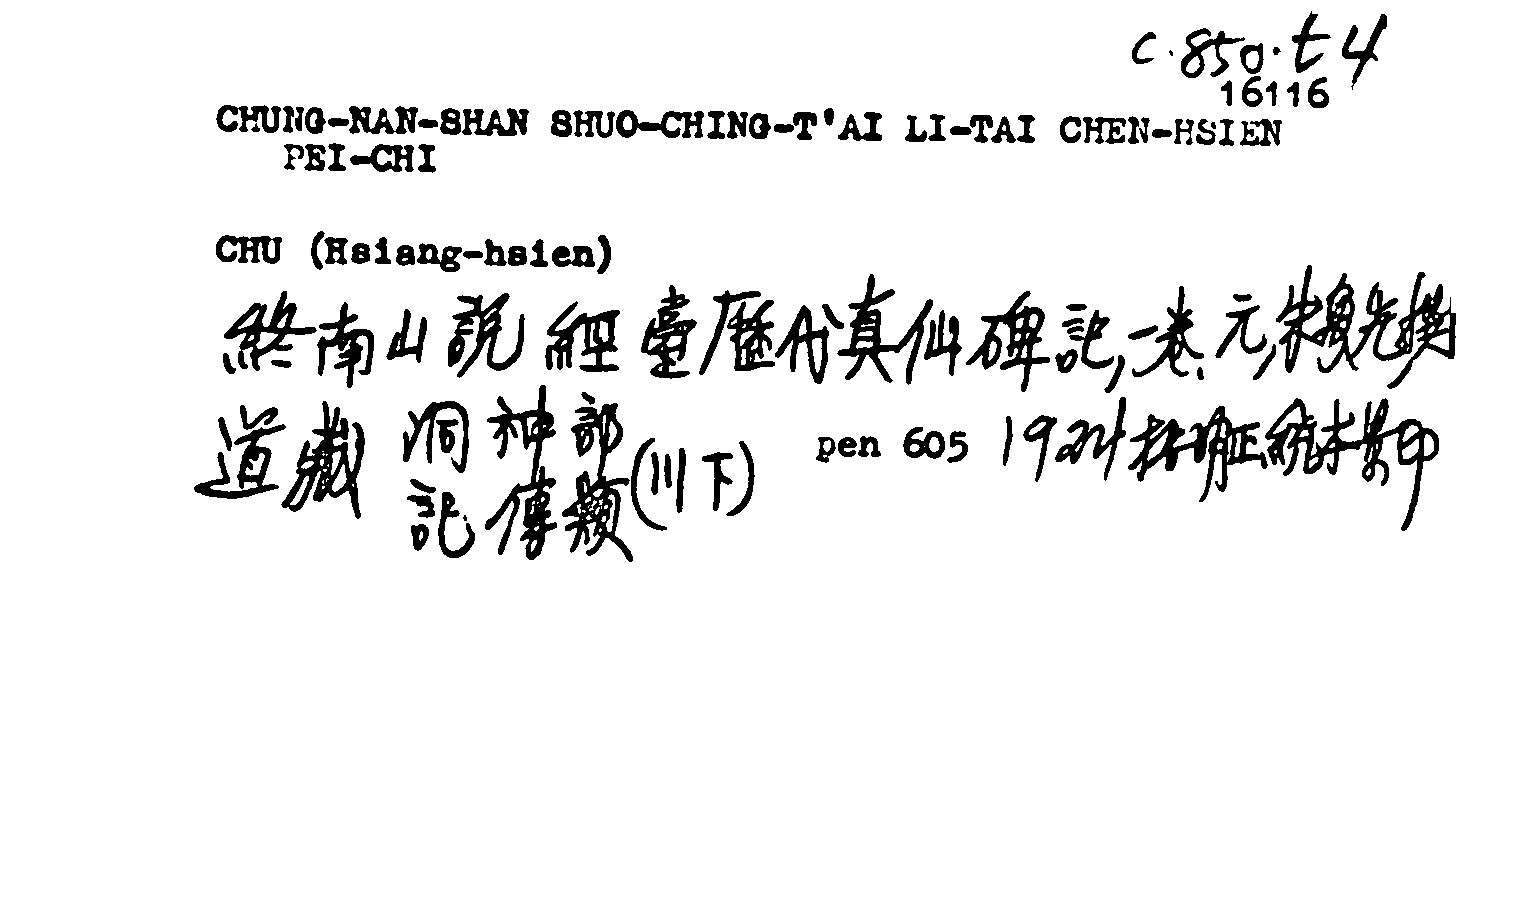 C.850.t4
16116
CHUNG-NAN-SHAN SHUO-CHING-T'AI LI-TAI CHEN-HSIEN
PEI-CHI
CHU (Hsiang-hsien)
終南山説經臺歷代真仙碑記,一卷、元,朱象先撰
道藏 洞神部 記傳類 (川下) pen 605 1924 據明正統本景印